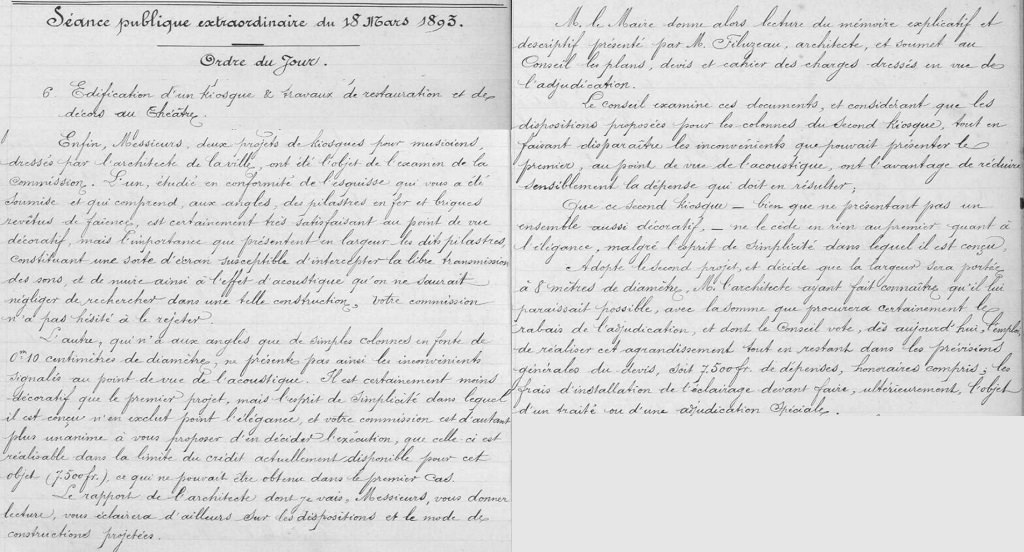 Séance publique extraordinaire du 18 Mars 1893.
Ordre du Jour.
6. Edification d'un Kiosque & travaux de restauration et de
décors au Théâtre.
Enfin, Messieurs, deux projets de Kiosques pour musiciens,
dressés par l'architecte de la ville, ont été l'objet de l'examen de la
Commission. L'un, étudié en conformité de l'esquisse qui vous a été
soumise et qui comprend, aux angles, des pilastres en fer et briques
revêtus de faïence, est certainement très satisfaisant au point de vue
décoratif, mais l'importance que présentent en largeur les dits pilastres,
constituant une sorte d'écran susceptible d'intercepter la libre transmission
des sons, et de nuire ainsi à l'effet d'acoustique qu'on ne saurait
négliger de rechercher dans une telle construction, votre commission
n'a pas hésité à le rejeter.
L'autre, qui n'a aux angles que de simples colonnes en fonte de
0m10 centimètres de diamètre, ne présente pas ainsi les inconvénients
signalés au point de vue de l'acoustique. Il est certainement moins
décoratif que le premier projet, mais l'esprit de simplicité dans lequel
il est conçu n'en exclut point l'élégance, et votre commission est d'autant
plus unanime à vous proposer d'en décider l'exécution, que celle ci est
réalisable dans la limite du crédit actuellement disponible pour cet
objet (7.500 fr.), ce qui ne pouvait être obtenu dans le premier cas.
Le rapport de l'architecte dont je vais, Messieurs, vous donner
lecture, vous éclairera d'ailleurs sur les dispositions et le mode de
constructions projetées.
M. le Maire donne alors lecture du mémoire explicatif et
descriptif présenté par M. Filuzeau, architecte, et soumet au
Conseil les plans, devis et cahier des charges dressés en vue de
l'adjudication.
Le conseil examine ces documents, et considérant que les
dispositions proposées pour les colonnes du second Kiosque, tout en
faisant disparaître les inconvénients que pouvait présenter le
premier, au point de vue de l'acoustique, ont l'avantage de réduire
sensiblement la dépense qui doit en résulter;
Que ce second Kiosque – bien que ne présentant pas un
ensemble aussi décoratif, – ne le cède en rien au premier quant à
l'élégance, malgré l'esprit de simplicité dans lequel il est conçu,
Adopte le second projet, et décide que la largeur sera portée
à 8 mètres de diamètre, M. l'architecte ayant fait connaître qu'il lui
paraissait possible, avec la somme que procurera certainement le
rabais de l'adjudication, et dont le Conseil vote, dès aujourd'hui, l'emploi,
de réaliser cet agrandissement tout en restant dans les prévisions
générales du devis, soit 7.500 fr. de dépenses, honoraires compris; les
frais d'installation de l'éclairage devant faire, ultérieurement, l'objet
d'un traité ou d'une adjudication spéciale.